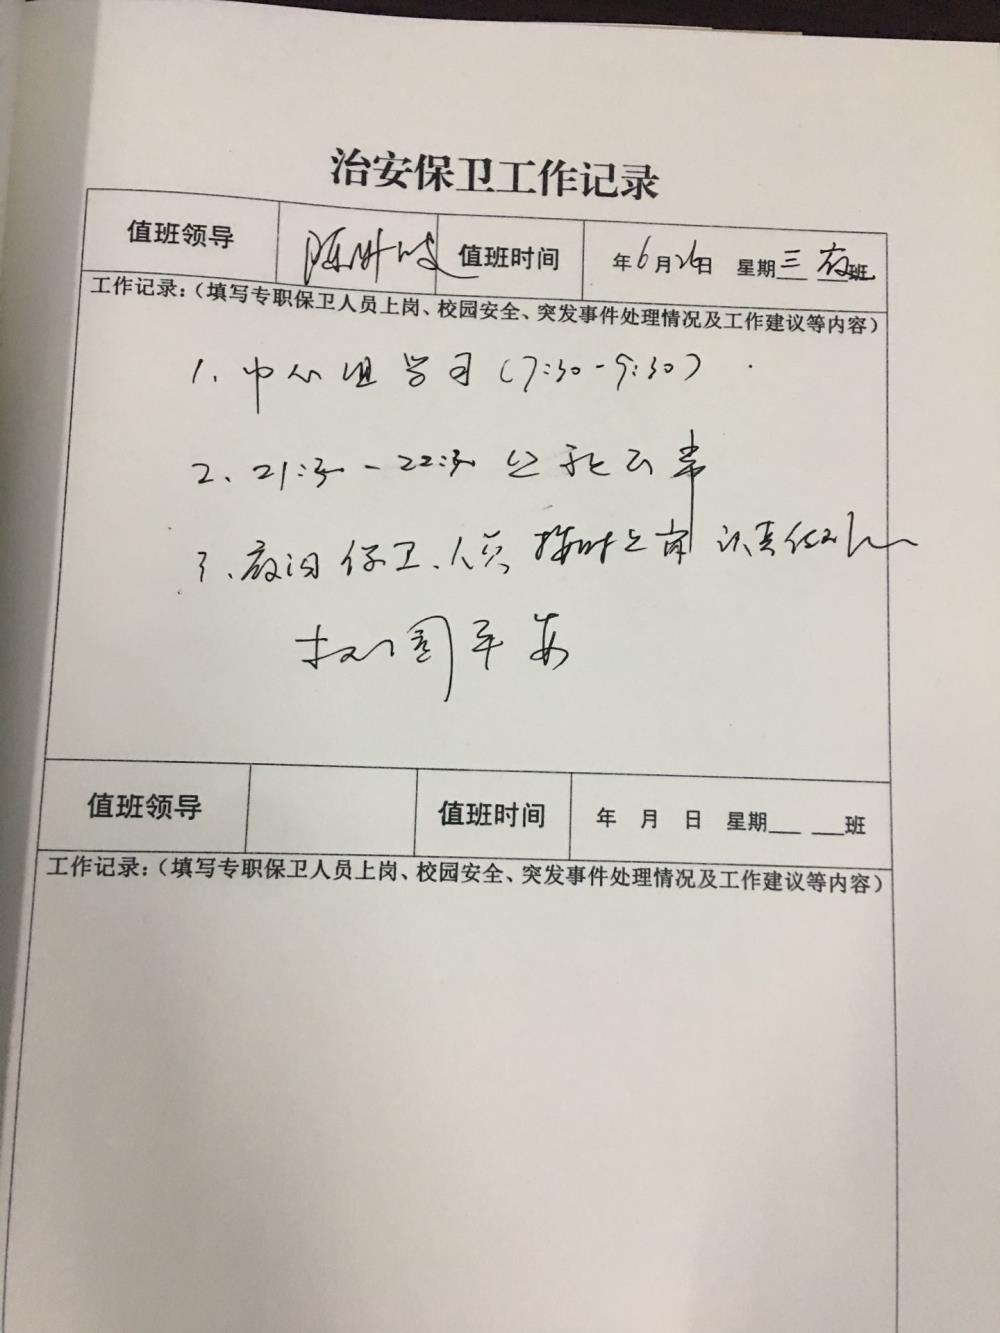 治安保卫工作记录
值班领导 值班时间 年6月26日 星期三 夜班
工作记录：（填写专职保卫人员上岗、校园安全、突发事件处理情况及工作建议等内容）
1、中心组学习（7:30-9:30）
2、21:30-22:30
3、夜间保卫人员按时上岗 认真
校园平安
值班领导 值班时间 年 月 日 星期___ ___班
工作记录：（填写专职保卫人员上岗、校园安全、突发事件处理情况及工作建议等内容）